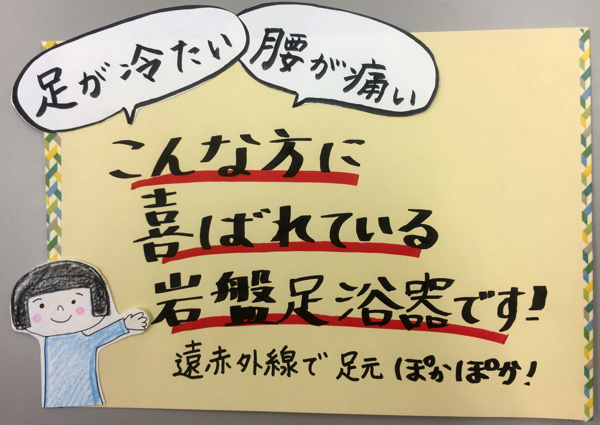 足が冷たい
腰が痛い
こんな方に
喜ばれている
岩盤足浴器です!
遠赤外線で 足元 ぽかぽか!